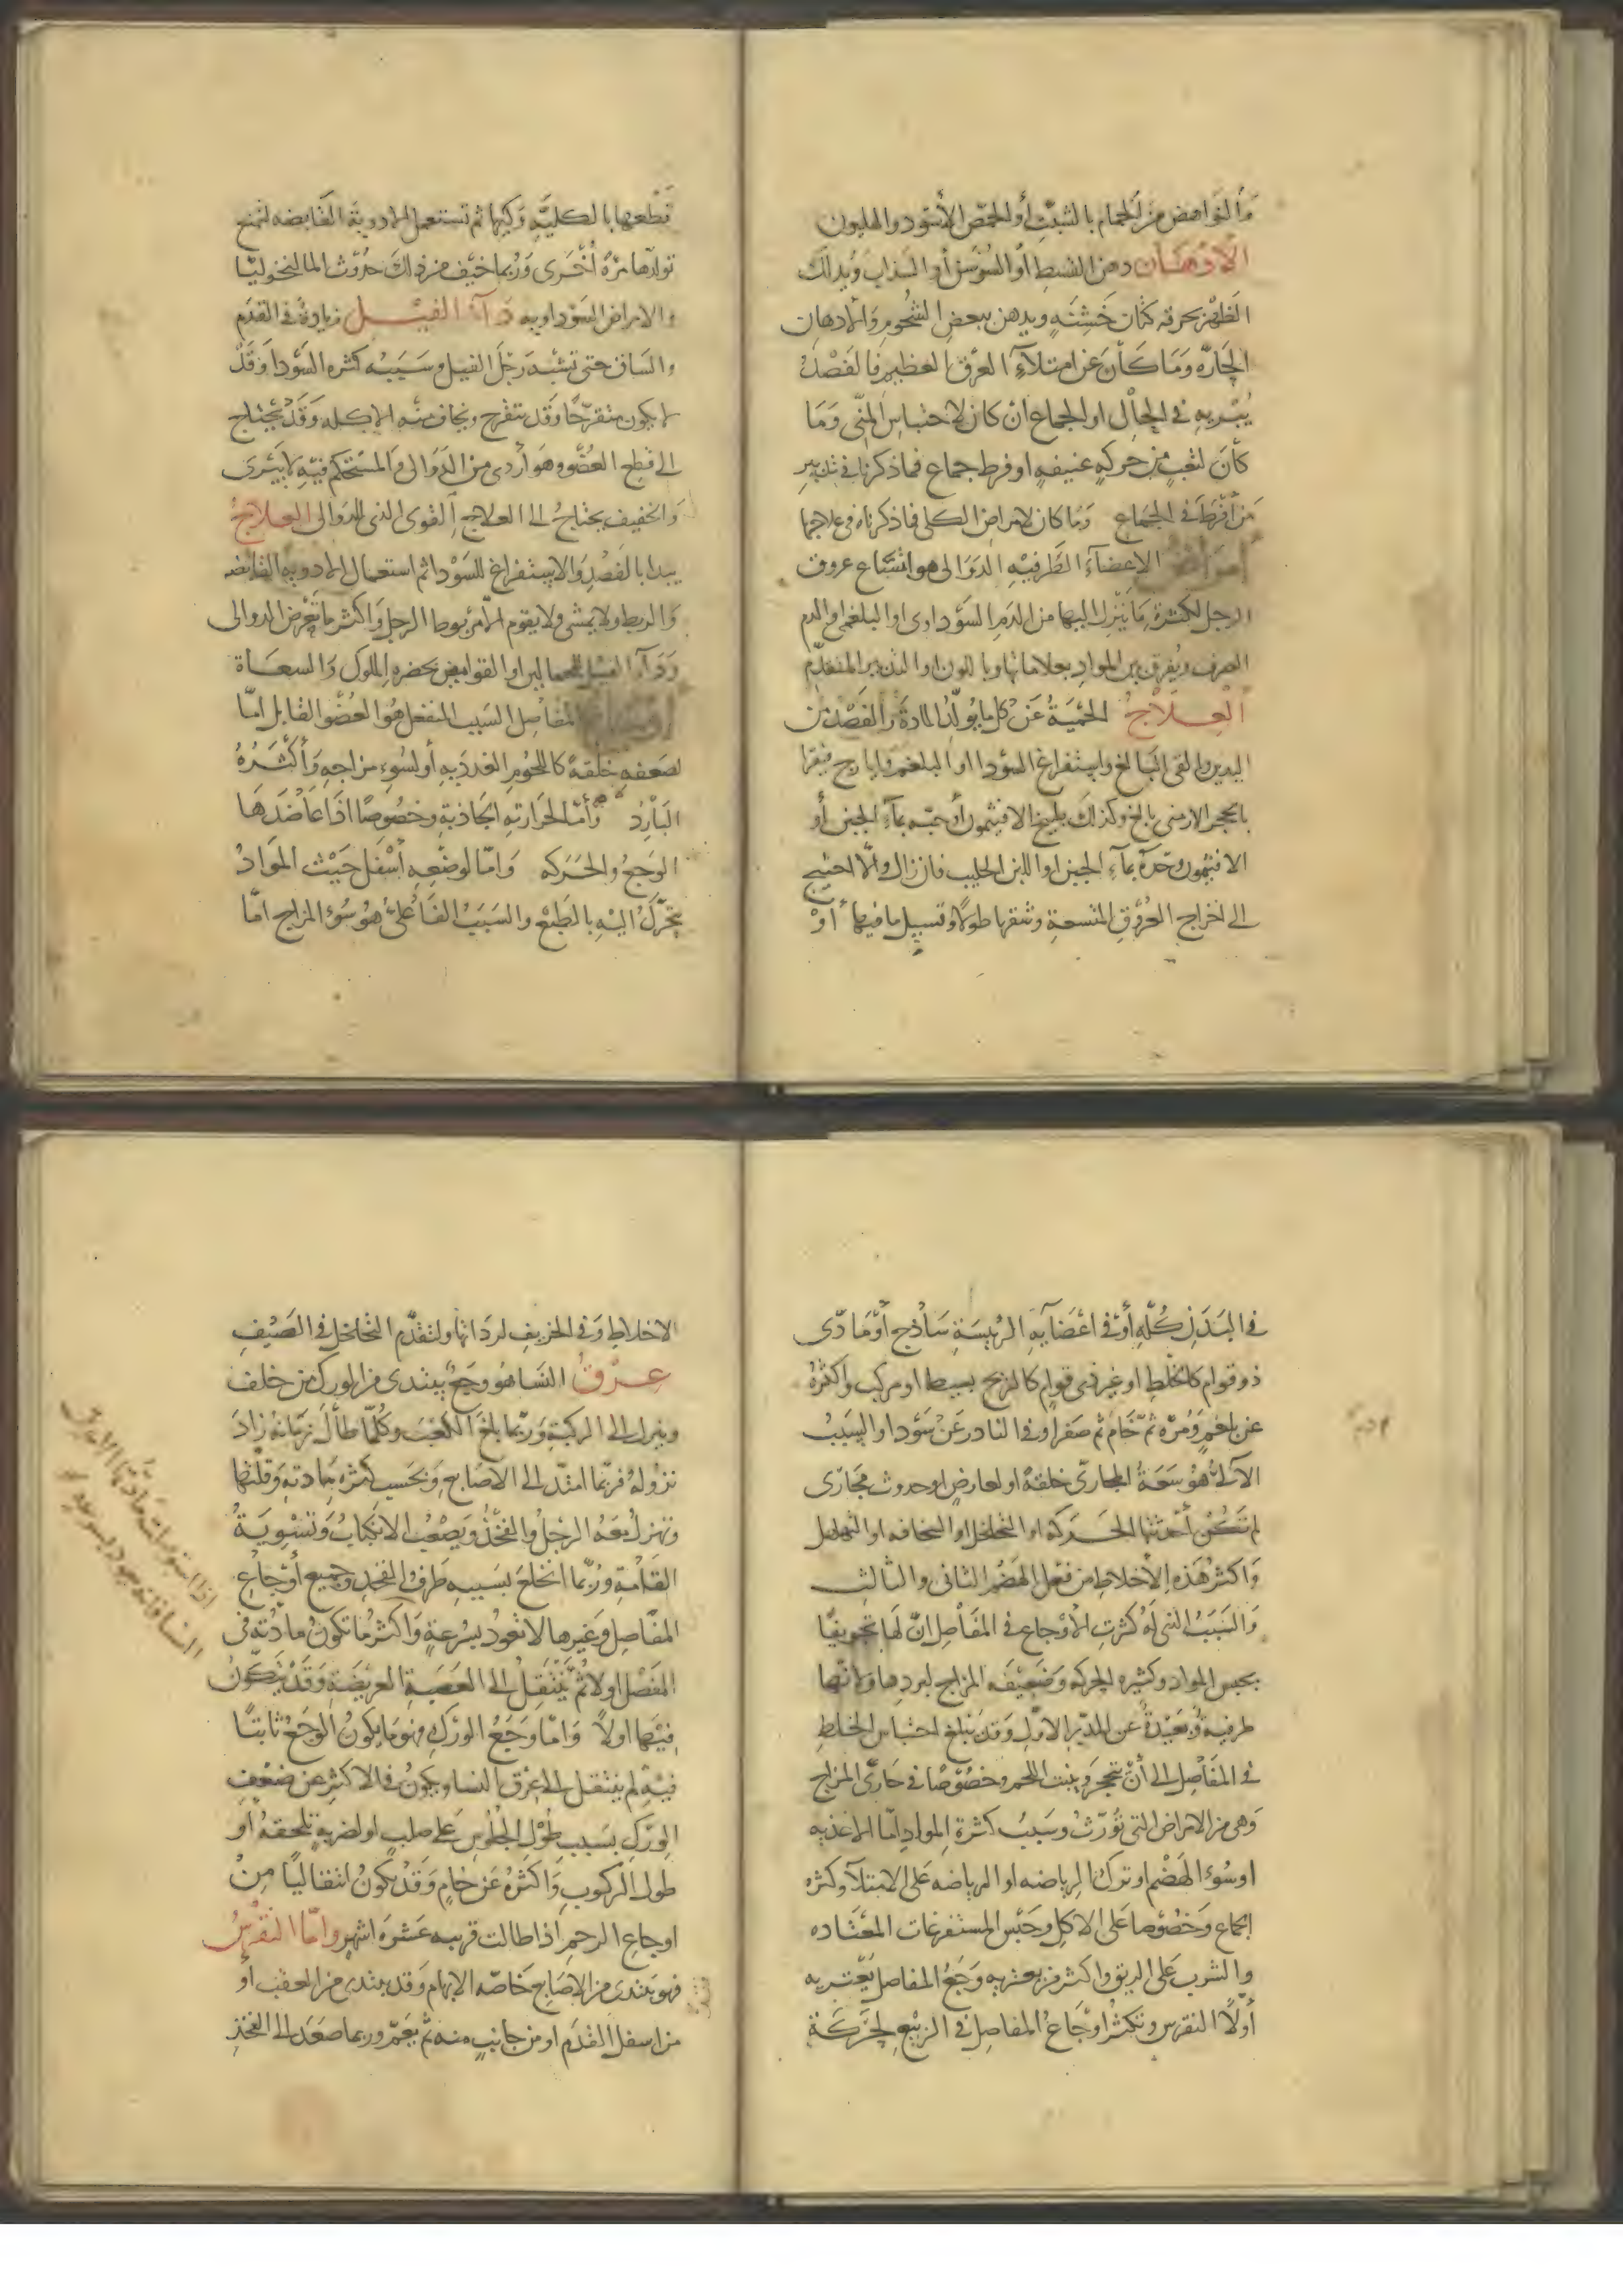 ماء النواهض من الحمام بالشبث أو الحمص الأسود والهليون
الأدهان دهن القسط أو السوسن أو السذاب ويدلك
الظهر بخرقة كتان خشنة ويدهن ببعض الشحوم والادهان
الحارة وما كان عن امتلاء العرق العظيم فالفصد
يبريه في الحال او الجماع ان كان لاحتباس المنى وما
كان لتعب من حركة عنيفة او فرط جماع فما ذكرنا في تدبير
من أفرط في الجماع وما كان لامراض الكلى فما ذكرناه في علاجها
امراض الاعضاء الطرفية الدوالى هو اتساع عروق
الرجل لكثرة ما ينزل اليها من الدم السوداوى او البلغم او الدم
الصرف ويفرق بين المواد بعلاماتها وبا للون او التدبير المتقدم
العلاج الحمية عن كل ما يولد المادة والفصد من
اليدين والقى البالغ واستفراغ السودا او البلغم وايارج فيقرا
بالحجر الارمنى بالغ وكذلك طبيخ الافتيمون أو حبه بماء الجبن أو
الافتيمون وحده بماء الجبن او اللبن الحليب فان زال والا احتيج
الى اخراج العروق المتسعة وشقها طولا وتسييل ما فيها أو
قطعها بالكلية وكيها ثم تستعمل الادوية القابضه لتمنع
تولدها مرة أخرى وربما خيف من ذلك حدوث المالنخوليا
والامراض السوداويه داء الفيل زيادة في القدم
والساق حتى تشبه رجل الفيل وسببه كثره السودا وقد
لا يكون متقرحا وقد تتقرح ويخاف منه الاكله وقد يحتاج
الى قطع العضو وهو أردى من الدوالى والمستحكم فيه لا يبرى
والخفيف يحتاج الى العلاج القوى الذى للدوالى العلاج
يبدا بالفصد والاستفراغ للسودا ثم استعمال الادوية القابضه
والربط ولا يمشى ولا يقوم الا مربوط الرجل واكثر ما تعرض الدوالى
وداء الفيل للحمالين او القوامين بحضره الملوك والسعاة
اوجاع المفاصل السبب المنفعل هو العضو القابل اما
لضعفه خلقة كاللحوم الغددية أو لسوء مزاجه وأكثره
البارد وأما لحرارته الجاذبة وخصوصا اذا عاضدها
الوجع والحركه واما لوضعه أسفل حيث المواد
يتحرك اليه بالطبع والسبب الفاعلى هو سوء المزاج اما
في البدن كله أو في اعضايه الرئيسة ساذج أو مادى
ذو قوام كالخلط او غير ذى قوام كالريح بسيط او مركب واكثره
عن بلغم ومرة ثم خام ثم صفرا وفي النادر عن سودا والسبب
الآلى هو سعة المجارى خلقة او لعارض او حدوث مجارى
لم تكن أحدثتها الحركة او التخلخل او السخافه او التهلهل
واكثر هذه الأخلاط من فعل الهضم الثانى والثالث
والسبب الذى له كثرت الأوجاع في المفاصل ان لها تجويفا
يحبس المواد وكثيره الحركه وضعيفه المزاج لبردها ولانها
طرفية وبعيدة عن المدبر الاول وقد يبلغ احتباس الخلط
في المفاصل الى أن يتحجر وينبت اللحم وخصوصا في حارى المزاج
وهى من الامراض التى تورث وسبب كثرة المواد اما الاغذيه
او سوء الهضم او ترك الرياضه او الرياضه على الامتلاء وكثره
الجماع وخصوصا على الاكل وحبس المستفرغات المعتاده
والشرب على الريق واكثر من يعتريه وجع المفاصل يعتريه
أولا النقرس وتكثر اوجاع المفاصل في الربيع لحركة
الاخلاط وفي الخريف لردائتها ولتقدم التخلخل في الصيف
عرق النسا هو وجع يبتدى من الورك من خلف
وينزل الى الركبة وربما بلغ الكعب وكلما طال زمانه زاد
نزوله فربما امتد الى الاصابع وبحسب كثره مادته وقلتها
وتهزل معه الرجل والفخذ ويصعب الانكباب وتسوية
القامة وربما انخلع بسببه طرف الفخذ وجميع أوجاع
المفاصل وغيرها لا تعود بسرعة واكثر ما تكون مادته في
المفصل اولا ثم ينتقل الى العصبة العريضة وقد يتكون
فيها اولا واما وجع الورك فهو ما يكون الوجع ثابتا
فيه لم ينتقل الى عرق النسا ويكون في الاكثر عن ضعف
الورك بسبب طول الجلوس على صلب او لضربة تلحقه أو
طول الركوب واكثره عن خام وقد يكون انتقاليا من
اوجاع الرحم اذا طالت قريبه عشرة اشهر واما النقرس
فهو يبتدى من الاصابع خاصة الابهام وقد يبتدى من العقب أو
من اسفل القدم او من جانب منه ثم يعم وربما صعد الى الفخذ